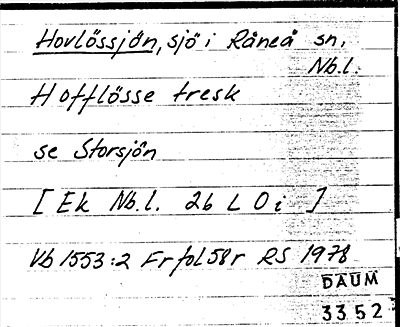 Hovlössjön, sjö i Råneå sn,
Nb.l.
Hofflösse tresk
se Storsjön
[ Ek Nb.l. 26 L 0 i ]
Vb 1553:2 Fr fol 58r RS 1978
DAUM
3352